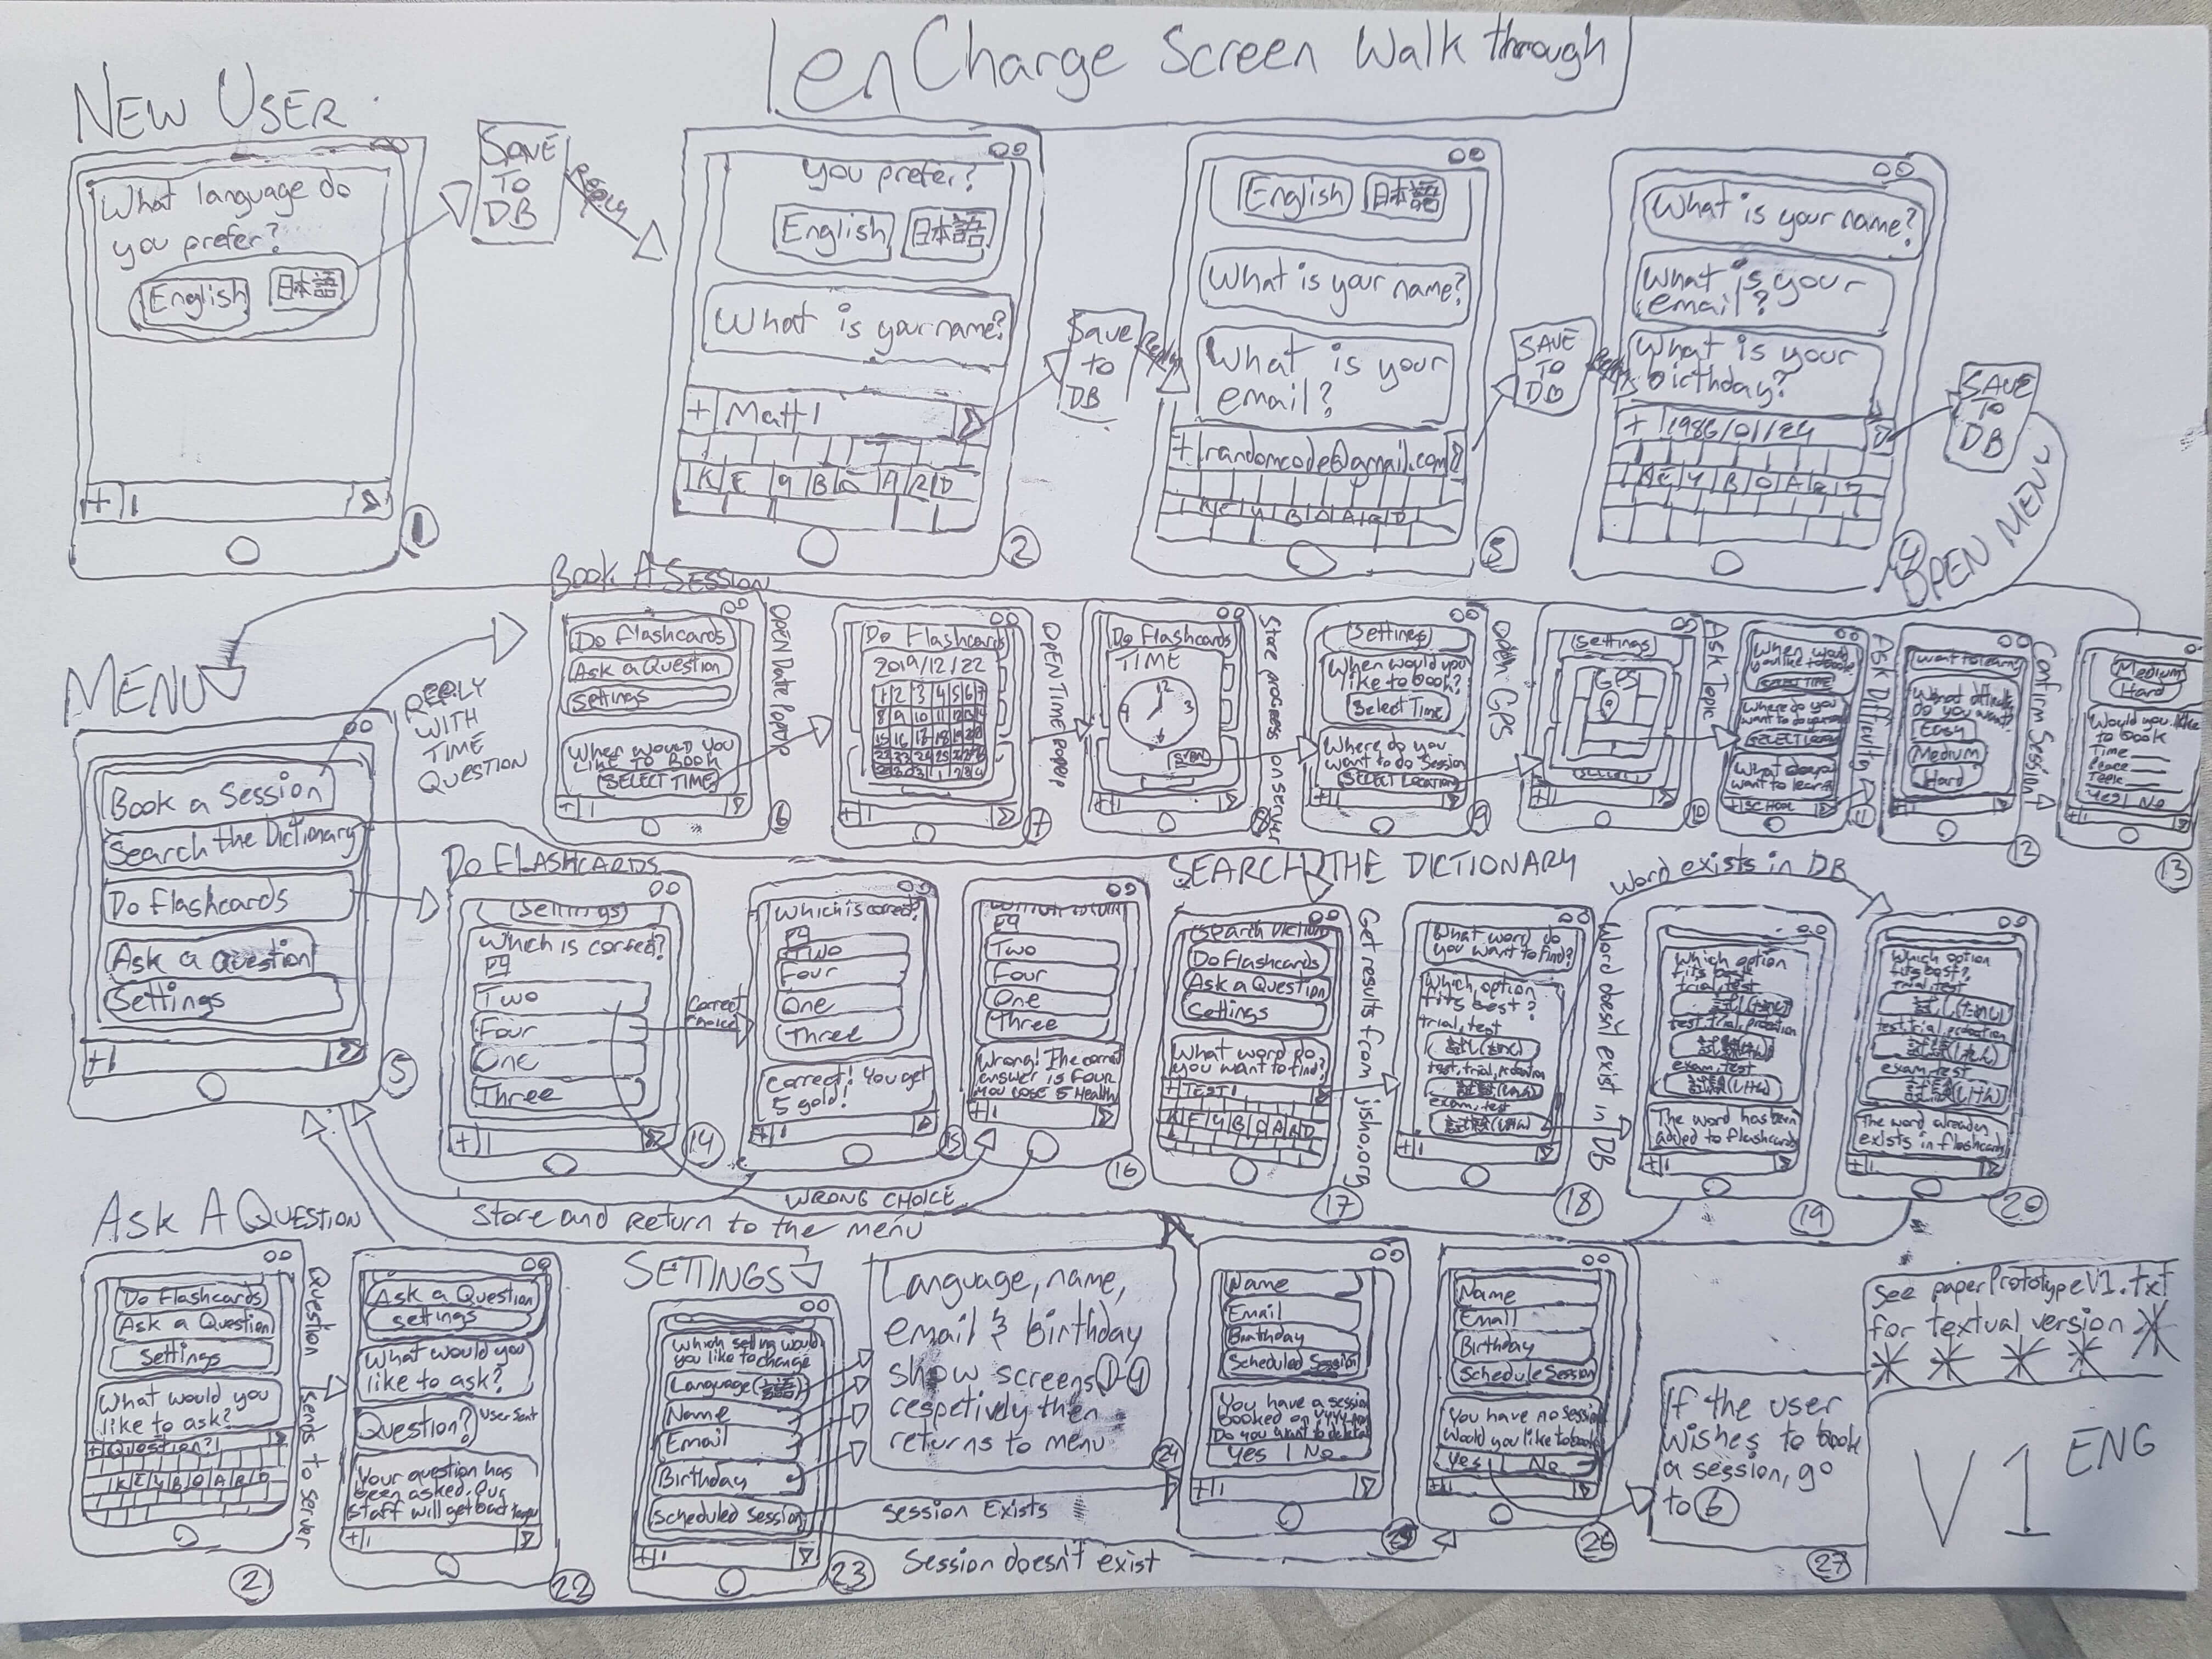 enCharge Screen Walkthrough
NEW USER
What language do
you prefer?
English 日本語
+
1
SAVE
TO
DB
Reply
you prefer?
English 日本語
What is your name?
+ Matt
2
Save
to
DB
Reply
English 日本語
What is your name?
What is your
email?
+ randomcode@gmail.com
KEYBOARD
3
SAVE
TO
DB
Reply
What is your name?
What is your
email?
What is your
birthday?
+ 1986/01/24
KEYBOARD
4
SAVE
TO
DB
OPEN MENU
MENU
Book a Session
Search the Dictionary
Do Flashcards
Ask a Question
Settings
+
5
REPLY
WITH
TIME
QUESTION
BOOK A SESSION
Do Flashcards
Ask a Question
Settings
When would you
like to book
SELECT TIME
+
6
OPEN Date Popup
Do Flashcards
2019/12/22
1 2 3 4 5 6 7
8 9 10 11 12 13 14
15 16 17 18 19 20
7
OPEN TIME POPUP
Do Flashcards
TIME
12
3
6
9
+
8
Store process on server
Settings
When would you
like to book?
Select Time
Where do you
want to do session
SELECT LOCATION
+
9
OPEN GPS
Settings
GPS
+
10
Ask Topic
When would
you like to book
SELECT TIME
Where do you
want to do
What do you
want to learn
+ SCHOOL
11
Ask Difficulty
want to learn
do you want?
Easy
Medium
Hard
12
Confirm Session
Medium
Hard
Would you like
to book
Time
Place
Yes | No
13
DO FLASHCARDS
Settings
Which is correct?
四
Two
Four
One
Three
+
14
Correct
choice
Which is correct?
四
Two
Four
One
Three
Correct! You get
5 gold!
+
15
四
Two
Four
One
Three
Wrong! The correct
answer is four
You lose 5 Health
+
16
WRONG CHOICE
Store and return to the menu
SEARCH THE DICTIONARY
Do Flashcards
Ask a Question
Settings
What word do
you want to find?
+ TEST
KEYBOARD
17
Get results from jisho.org
What word do
you want to find?
Which option
fits best?
trial, test
exam, test
18
Word exists in DB
Word doesn't exist in DB
Which option
fits best
trial, test
exam, test
The word has been
added to flashcards
+
19
Which option
fits best?
trial, test
exam, test
The word already
exists in flashcards
+
20
ASK A QUESTION
Do Flashcards
Ask a Question
Settings
What would you
like to ask?
+ Question?
KEYBOARD
2
Question sends to server
Ask a Question
settings
What would you
like to ask?
Question? User Sent
Your question has
been asked. Our
staff will get back
+
22
SETTINGS
Which setting would
you like to change
Language (言語)
Name
Email
Birthday
Scheduled Session
+
23
Language, name,
email & birthday
show screens 1-4
respetively then
returns to menu
24
Session Exists
Session doesn't exist
Name
Email
Birthday
Scheduled Session
You have a session
booked on
Do you want to delete
Yes | No
+
25
Name
Email
Birthday
Schedule Session
You have no session
Would you like to book
Yes | No
26
If the user
wishes to book
a session, go
to 6
27
See paperPrototypeV1.txt
for textual version
V1 ENG